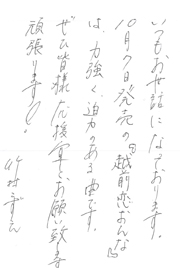 いつもお世話になっております。
10月7日発売の『越前恋おんな』
は、力強く、迫力のある曲です。
ぜひ皆様応援宜しくお願い致します
頑張ります!
竹村こずえ